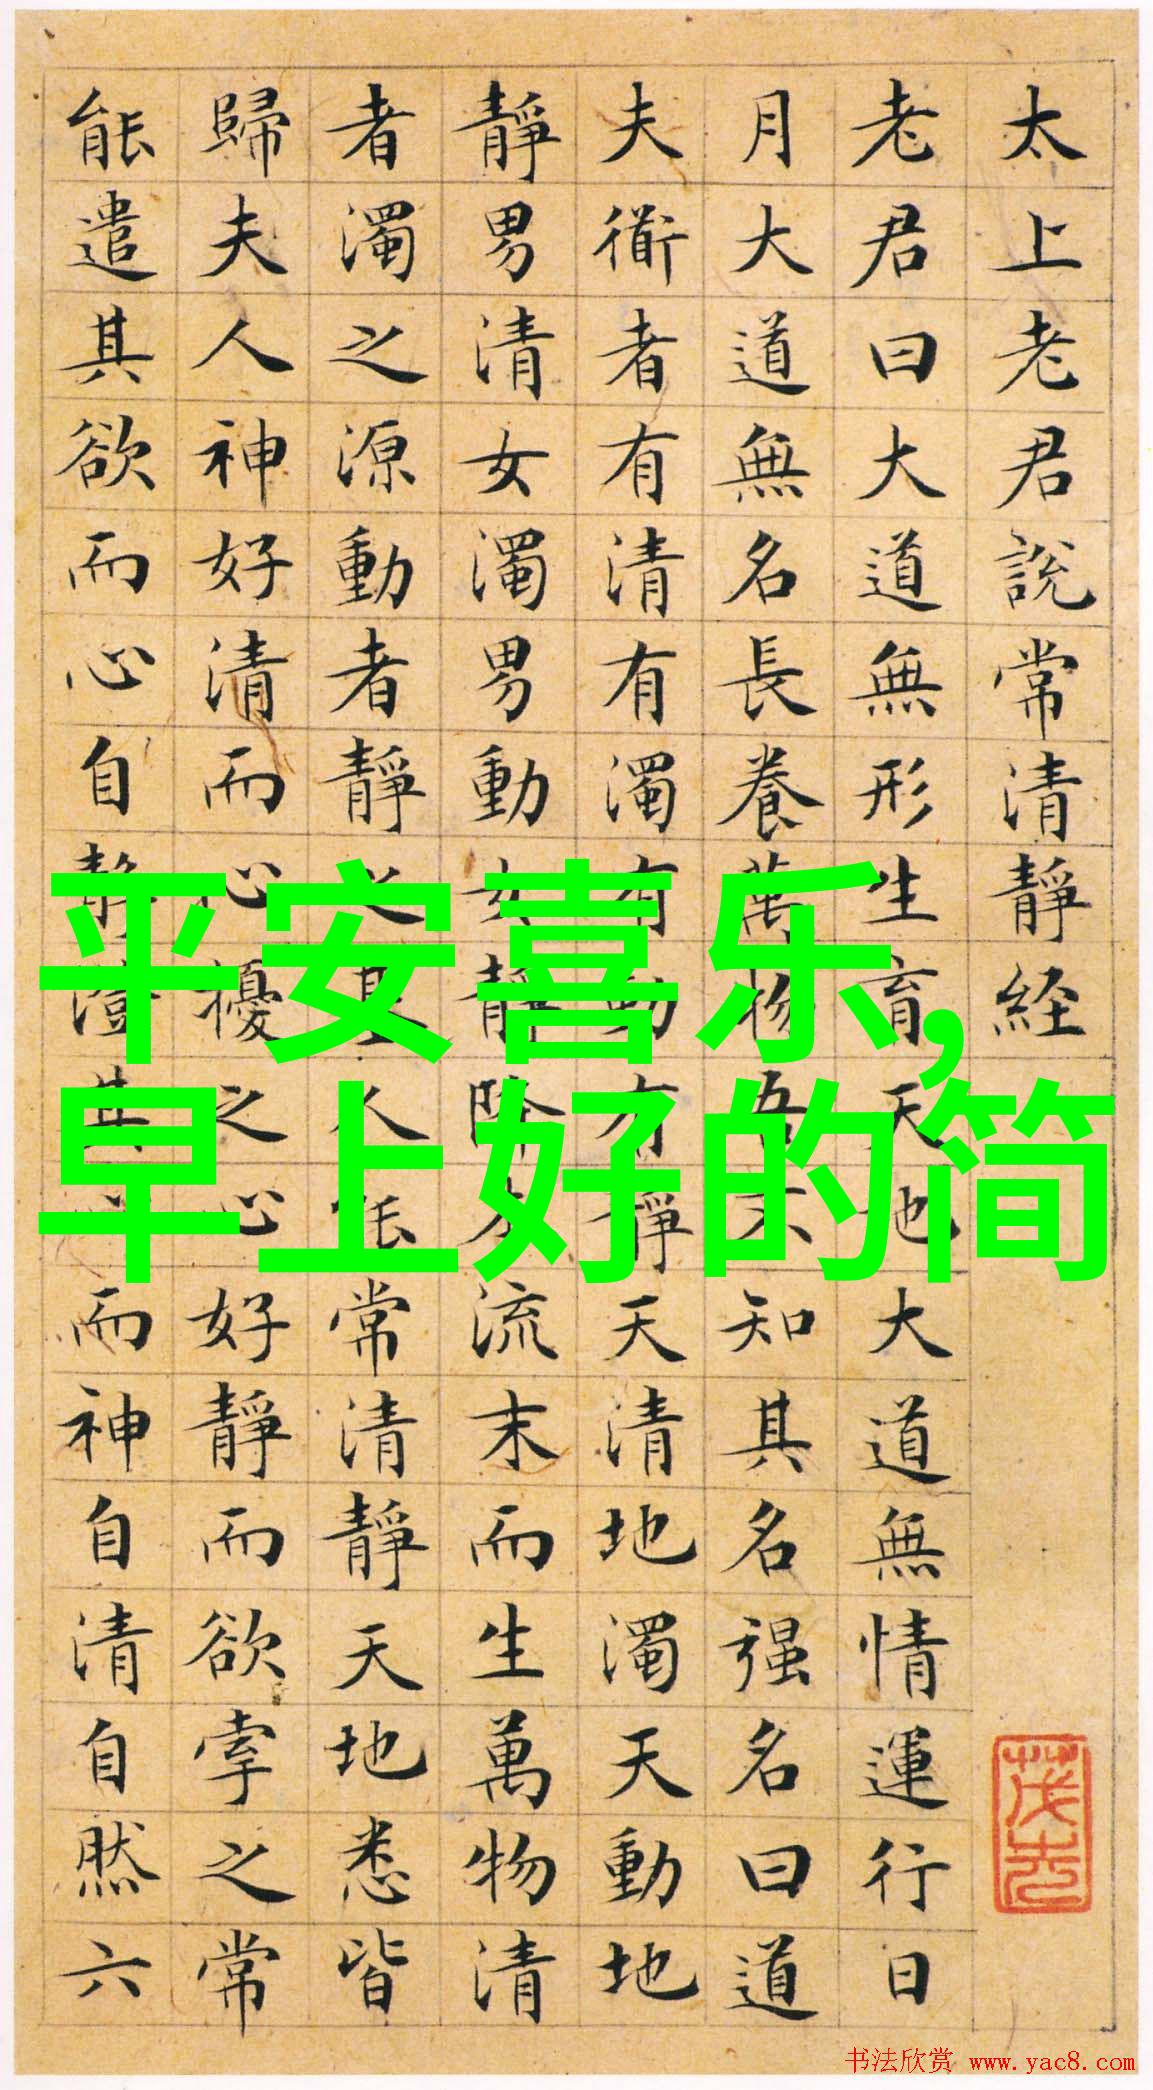 太上老君說常清靜経
老君曰大道無形生育天地大道無情運行日
月大道無名長養萬物吾不知其名强名曰道
夫衜者有清有濁有動有靜天清地濁天動地
靜男清女濁男動女靜降夲流末而生萬物清
者濁之源動者靜之基人能常清靜天地悉皆
歸夫人神好清而心擾之心好靜而欲牽之常
能遣其欲而心自靜澄其心而神自清自然六
平安喜乐,
早上好的简
书法欣赏 www.yac8.com